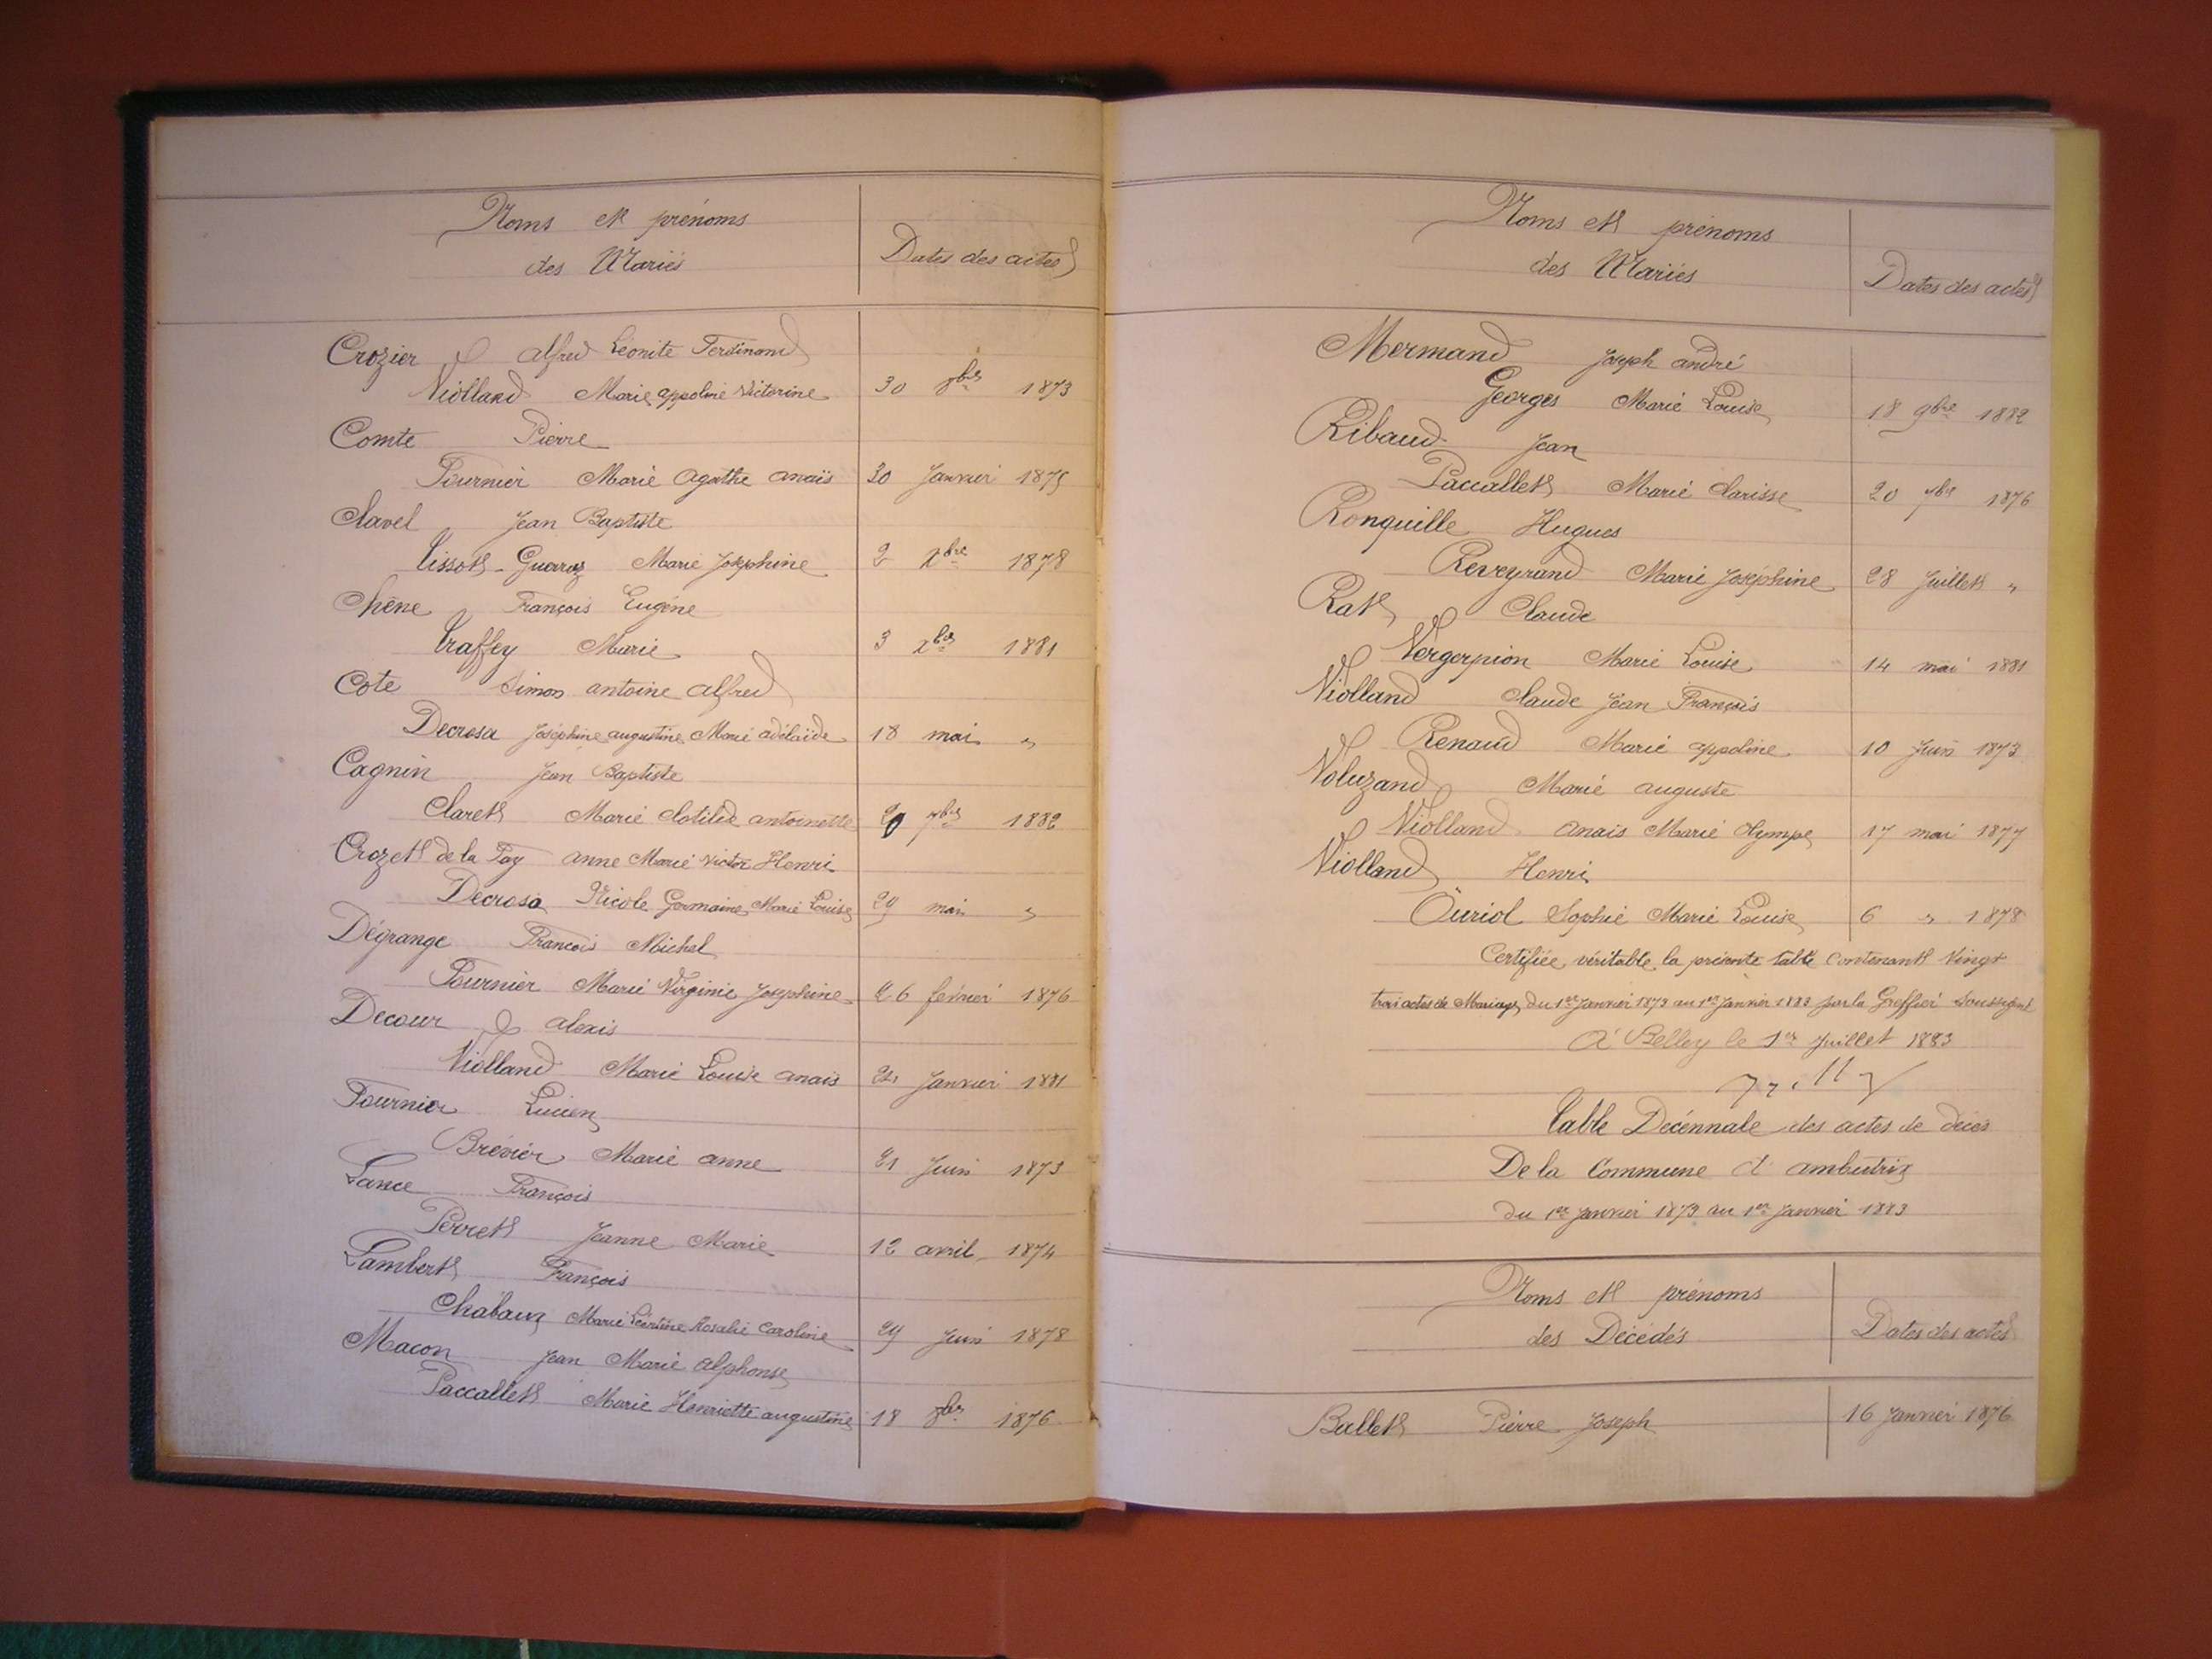 Noms et prénoms
des Mariés
Dates des actes
Crozier Alfred Léonite Ferdinand
Violland Marie Appoline Victorine 30 8bre 1873
Comte Pierre
Fournier Marie Agathe Anaïs 30 Janvier 1875
Clavel Jean Baptiste
Tissot-Guerraz Marie Joséphine 2 Xbre 1878
Chêne François Eugène
Traffey Marie 3 Xbre 1881
Cote Simon Antoine Alfred
Decrosa Joséphine Augustine Marie Adélaïde 18 mai "
Cagnin Jean Baptiste
Claret Marie Clotilde Antoinette 20 7bre 1882
Crozet de la Fay Anne Marie Victor Henri
Decrosa Nicole Germaine Marie Louise 29 mai "
Dégrange François Michel
Fournier Marie Virginie Joséphine 26 février 1876
Decour Alexis
Violland Marie Louise Anais Janvier 1881
Fournier Lucien
Brévier Marie Anne 21 Juin 1873
Lance François
Perret Jeanne Marie 12 avril 1874
Lambert François
Chabaux Marie Rosalie Caroline 29 Juin 1878
Macon Jean Marie Alphonse
Paccallet Marie Henriette Augustine 18 8bre 1876
Noms et prénoms
des Mariés
Dates des actes
Mermand Joseph André
Georges Marie Louise 18 9bre 1882
Ribaud Jean
Paccallet Marie Clarisse 20 7bre 1876
Ronquille Hugues
Reveyrand Marie Joséphine 28 Juillet "
Rat Claude
Vergerpion Marie Louise 14 mai 1881
Violland Claude Jean François
Renaud Marie Appoline 10 Juin 1873
Voluzand Marie Auguste
Violland Anais Marie Olympe 17 mai 1877
Violland Henri
Ouriol Sophie Marie Louise 6 " 1878
Certifiée véritable la présente table contenant Vingt
trois actes de Mariage du 1er Janvier 1873 au 1er Janvier 1883 par le Greffier soussigné
A Belley le 1er Juillet 1883
Table Décennale des actes de décès
De la Commune d'Ambutrix
Du 1er Janvier 1873 au 1er Janvier 1883
Noms et prénoms
des Décédés
Dates des actes
Ballet Pierre Joseph 16 Janvier 1876